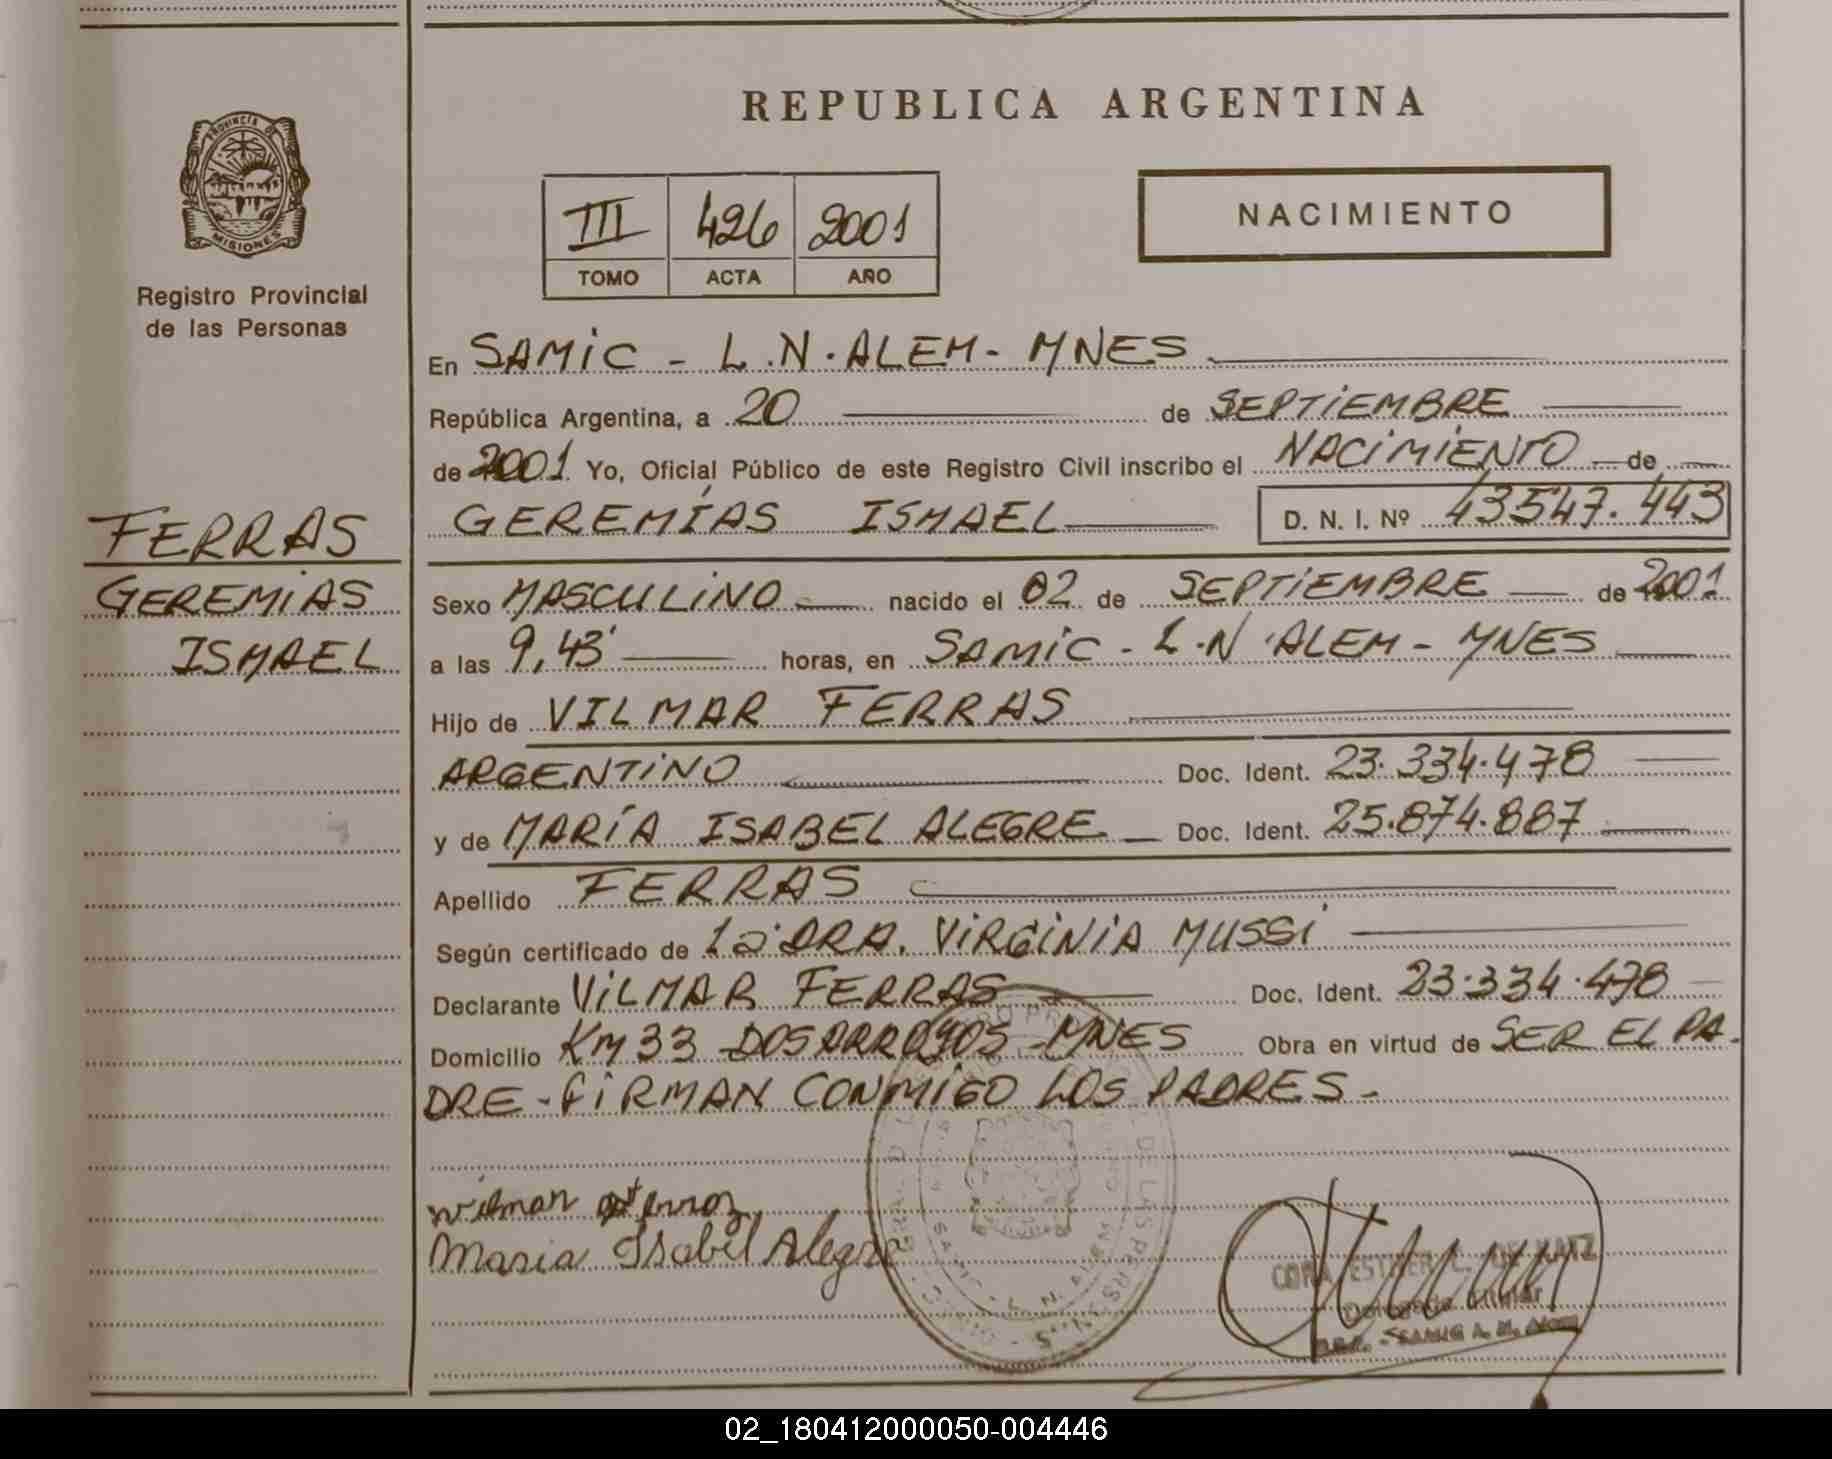 PROVINCIA DE
MISIONES
Registro Provincial
de las Personas
FERRAS
GEREMIAS
ISMAEL
REPUBLICA ARGENTINA
III 426 2001
TOMO ACTA AÑO
NACIMIENTO
En SAMIC - L.N. ALEM - MNES
República Argentina, a 20 de SEPTIEMBRE
de 2001 Yo, Oficial Público de este Registro Civil inscribo el NACIMIENTO de
GEREMÍAS ISMAEL D. N. I. Nº 43547.443
Sexo MASCULINO nacido el 02 de SEPTIEMBRE de 2001
a las 9,43' horas, en SAMIC - L.N. ALEM - MNES
Hijo de VILMAR FERRAS
ARGENTINO Doc. Ident. 23.334.478
y de MARÍA ISABEL ALEGRE Doc. Ident. 25.874.887
Apellido FERRAS
Según certificado de La DRA. VIRGINIA MUSSI
Declarante VILMAR FERRAS Doc. Ident. 23.334.478
Domicilio Km 33 DOS ARROYOS - MNES Obra en virtud de SER EL PA-
DRE - FIRMAN CONMIGO LOS PADRES -
Maria Isabel Alegre
CORA ESTHER C. DE KATZ
02_180412000050-004446